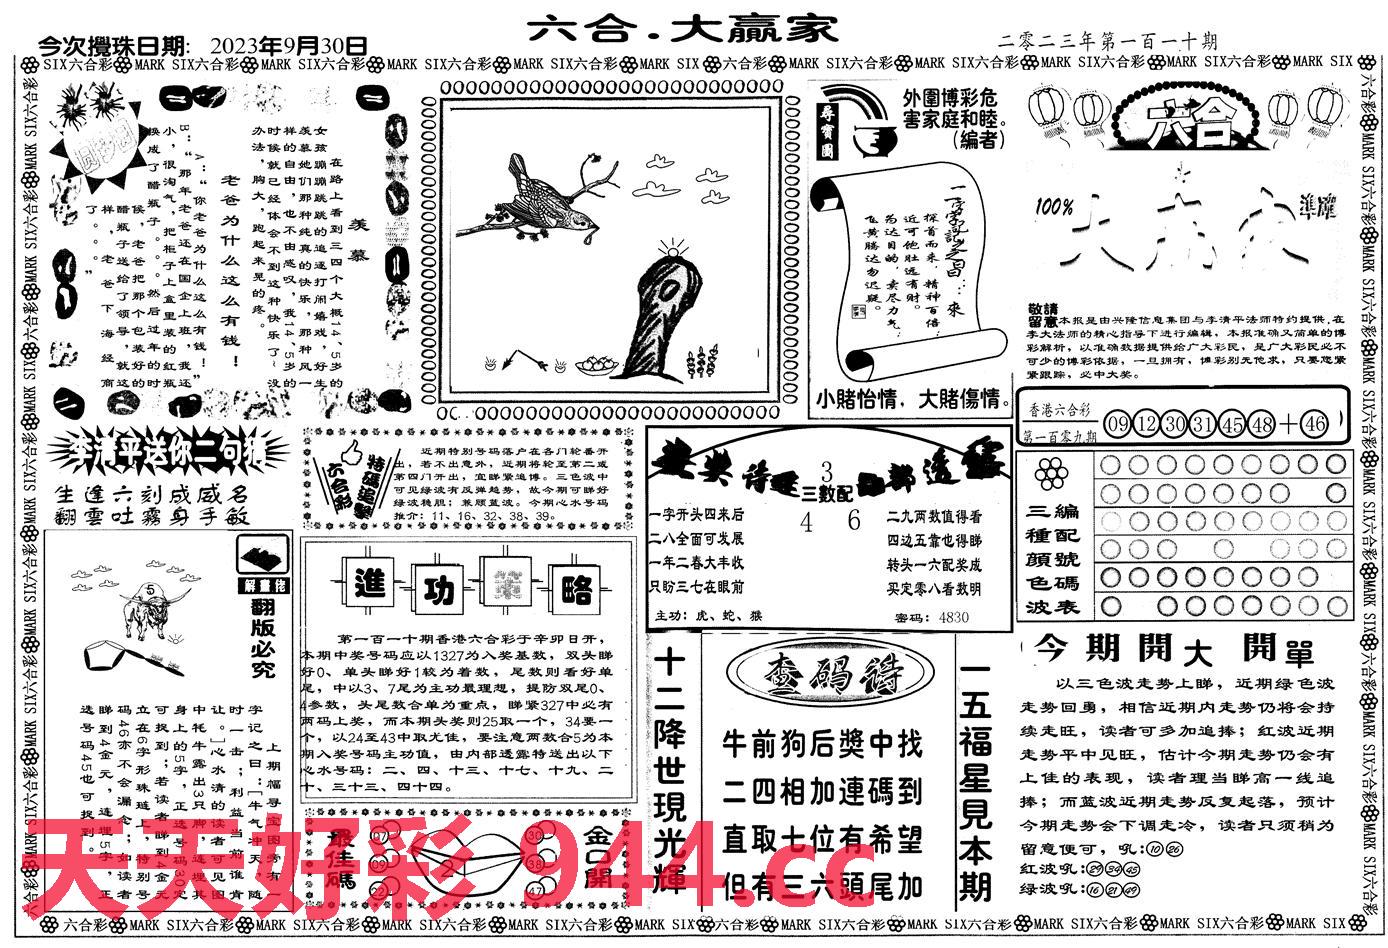 六合.大赢家
今次攪珠日期: 2023年9月30日
二零二三年第一百一十期
SIX六合彩 MARK SIX六合彩 MARK SIX六合彩 MARK SIX六合彩 MARK SIX六合彩 MARK SIX 六合彩 MARK SIX六合彩 MARK SIX六合彩 MARK SIX六合彩 MARK SIX六合彩 MARK SIX
羡慕
在路上看到三四个大抵14、5岁的
女孩蹦蹦跳跳的追逐打闹嬉戏,好生
羡慕她们那种纯真的快乐,那种风一
样的自由,也不由感叹,我14、5岁的
时候就已经体会不到这种快乐了~没
办法,胸大,跑起来晃的疼。
老爸为什么这么有钱!
A:“你老爸为什么这么有钱!”
B:“那年老爸还在国企上班,我还
小,很淘气,把柜子上盒里装的红瓶
换成了醋瓶子。。。然后过年的时
候,老爸把那个包装好的
醋瓶子送给了领导,就这
样,老爸下海经商
了。。。”
尋寶圖
外圍博彩危
害家庭和睦。
(編者)
一字記之曰:來
探首而来,精神百倍
近可他肚远有财。
为达目的,卖尽力气
飞黄腾达勿迟疑。
小賭怡情,大賭傷情。
六合
100%
準確
敬請
留意
本报是由兴隆信息集团与李清平法师特约提供,在
李大法师的精心指导下进行编辑,本报准确又简单的博
彩解析,以准确数据提供给广大彩民,是广大彩民必不
可少的博彩依据,一旦拥有,博彩别无他求,只要您紧
紧跟踪,必中大奖。
香港六合彩
第一百零九期
09 12 30 31 45 48 + 46
三編
種配
顏號
色碼
波表
李清平送你二句猜
生逢六刻成威名
翻雲吐霧身手敏
六合彩
特碼追擊
近期特别号码落户在各门轮番开
出,若不出意外,近期将轮至第二或
第四门开出,宜睇紧追博。三色波中
可见绿波有反弹趋势,故今期可睇好
绿波稳胆;兼顾蓝波。今期心水号码
推介:11、16、32、38、39。
3
三數配
4 6
一字开头四来后
二八全面可发展
一年二春大丰收
只盼三七在眼前
主功:虎、蛇、猴
二九两数值得看
四边五靠也得睇
转头一六配奖成
买定零八看数明
密码:4830
5
解畫佬
翻版必究
上期幅寻宝图旁有一
字记之曰:[牛气冲天,随
时一击;利益当前谁肯
让。]心水清的读者可见图
中牦牛露出3只脚,连埋其
身上的5字,正选号码30定
可捉到;若读者睇到4金元
立在6字形珠琏上,特别号
码46亦不会漏念;如读者
睇到4金元,连埋5字,正
选号码45也可捉到。
進功策略
第一百一十期香港六合彩于辛卯日开,
本期中奖号码应以1327为入奖基数,双头睇
好0、单头睇好1较为着数,尾数则看好单
尾,中以3、7尾为主功最理想,提防双尾0、
4参数,头尾数合单为重点,睇紧327中必有
两码上奖,而本期头奖则25取一个,34要一
个,以24至43中取尤佳,要注意两数合5为本
期入奖号码主功值,由内部透露特送出以下
心水号码:二、四、十三、十七、十九、二
十、三十三、四十四。
最佳碼
07 09 22
2
30 38 47
金口開
十二降世現光輝
查码诗
牛前狗后獎中找
二四相加連碼到
直取七位有希望
但有三六頭尾加
一五福星見本期
今期開大 開單
以三色波走势上睇,近期绿色波
走势回勇,相信近期内走势仍将会持
续走旺,读者可多加追捧;红波近期
走势平中见旺,估计今期走势仍会有
上佳的表现,读者理当睇高一线追
捧;而蓝波近期走势反复起落,预计
今期走势会下调走冷,读者只须稍为
留意便可,吼:10 26
红波吼:29 34 45
绿波吼:16 21 49
天天好彩 944.cc
六合彩 MARK SIX六合彩 MARK SIX六合彩 MARK SIX六合彩 MARK SIX六合彩 MARK SIX六合彩 MARK SIX六合彩 MARK SIX六合彩 MARK SIX六合彩 MARK SIX六合彩 MARK SIX